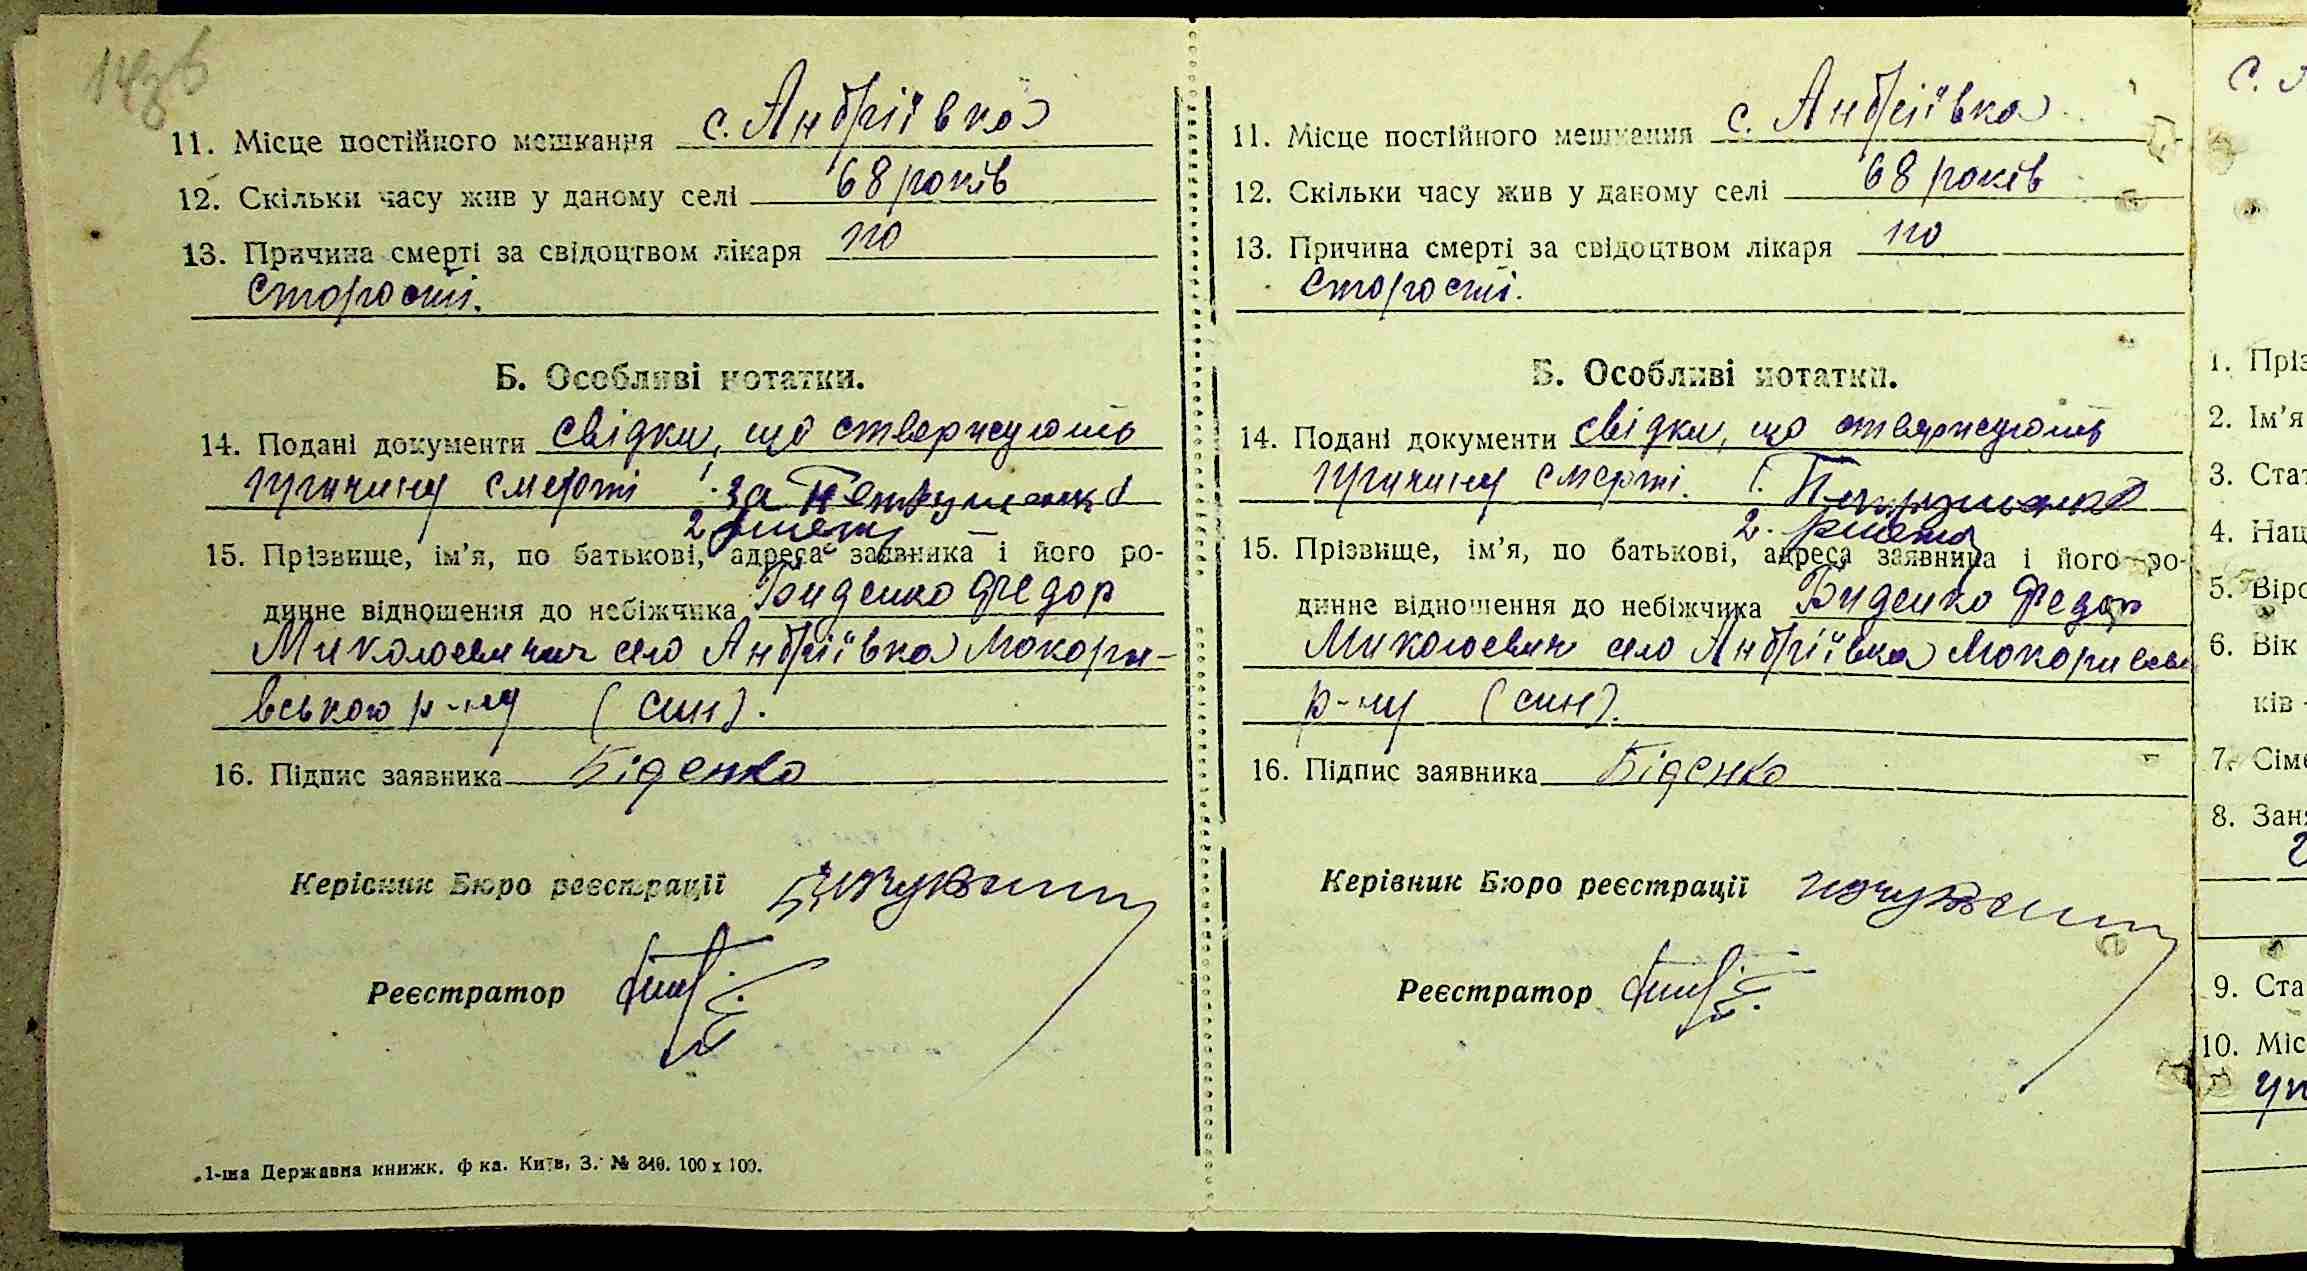 11. Місце постійного мешкання с. Андріївка
12. Скільки часу жив у даному селі 68 років
13. Причина смерті за свідоцтвом лікаря по
старості.
Б. Особливі нотатки.
14. Подані документи свідки, що ствержують
причину смерті
2
15. Прізвище, ім'я, по батькові, адреса заявника і його ро-
динне відношення до небіжчика Биденко Федор
Миколоевич село Андріївка Макари-
вського р-ну (син).
16. Підпис заявника Біденко
Керівник Бюро реєстрації
Реєстратор
1-ша Державна книжк. ф-ка. Київ, З. № 340. 100 х 100.
11. Місце постійного мешкання с. Андріївка
12. Скільки часу жив у даному селі 68 років
13. Причина смерті за свідоцтвом лікаря по
старості.
Б. Особливі нотатки.
14. Подані документи свідки, що ствержують
причину смерті. 1.
2.
15. Прізвище, ім'я, по батькові, адреса заявника і його ро-
динне відношення до небіжчика Биденко Федор
Миколоевич село Андріївка
р-ну (син).
16. Підпис заявника Біденко
Керівник Бюро реєстрації
Реєстратор
с.
1. Пріз
2. Ім'я
3. Стат
4. Нац
5. Віро
6. Вік
ків
7. Сіме
8. Зан
9. Ста
10. Міс